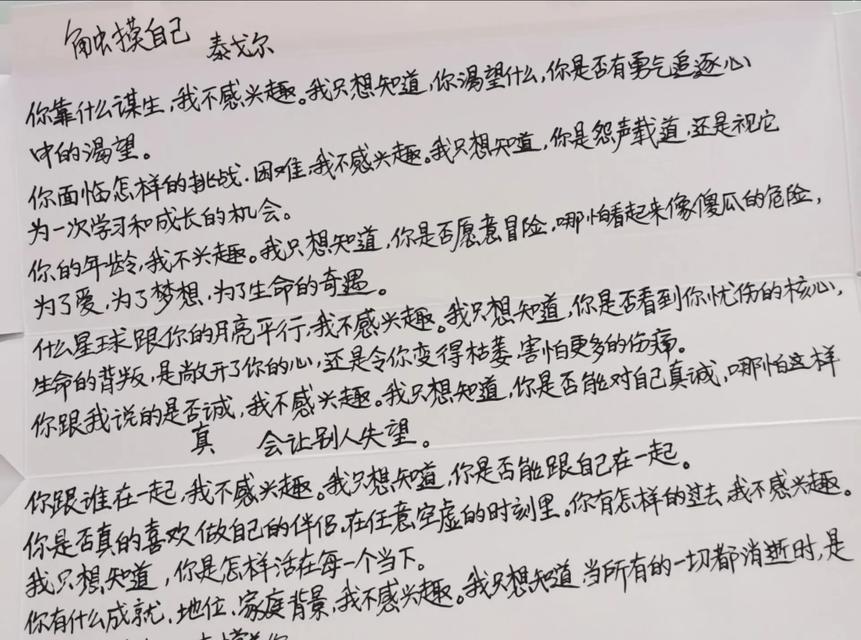 触摸自己 泰戈尔
你靠什么谋生,我不感兴趣。我只想知道,你渴望什么,你是否有勇气追逐心
中的渴望。
你面临怎样的挑战.困难,我不感兴趣。我只想知道,你是怨声载道,还是视它
为一次学习和成长的机会。
你的年龄,我不兴趣。我只想知道,你是否愿意冒险,哪怕看起来像傻瓜的危险,
为了爱,为了梦想,为了生命的奇遇。
什么星球跟你的月亮平行,我不感兴趣。我只想知道,你是否看到你忧伤的核心,
生命的背叛,是敞开了你的心,还是令你变得枯萎.害怕更多的伤痛。
你跟我说的是否诚,我不感兴趣。我只想知道,你是否能对自己真诚,哪怕这样
真 会让别人失望。
你跟谁在一起,我不感兴趣。我只想知道,你是否能跟自己在一起。
你是否真的喜欢做自己的伴侣,在任意空虚的时刻里。你有怎样的过去,我不感兴趣。
我只想知道,你是怎样活在每一个当下。
你有什么成就.地位.家庭背景,我不感兴趣。我只想知道,当所有的一切都消逝时,是